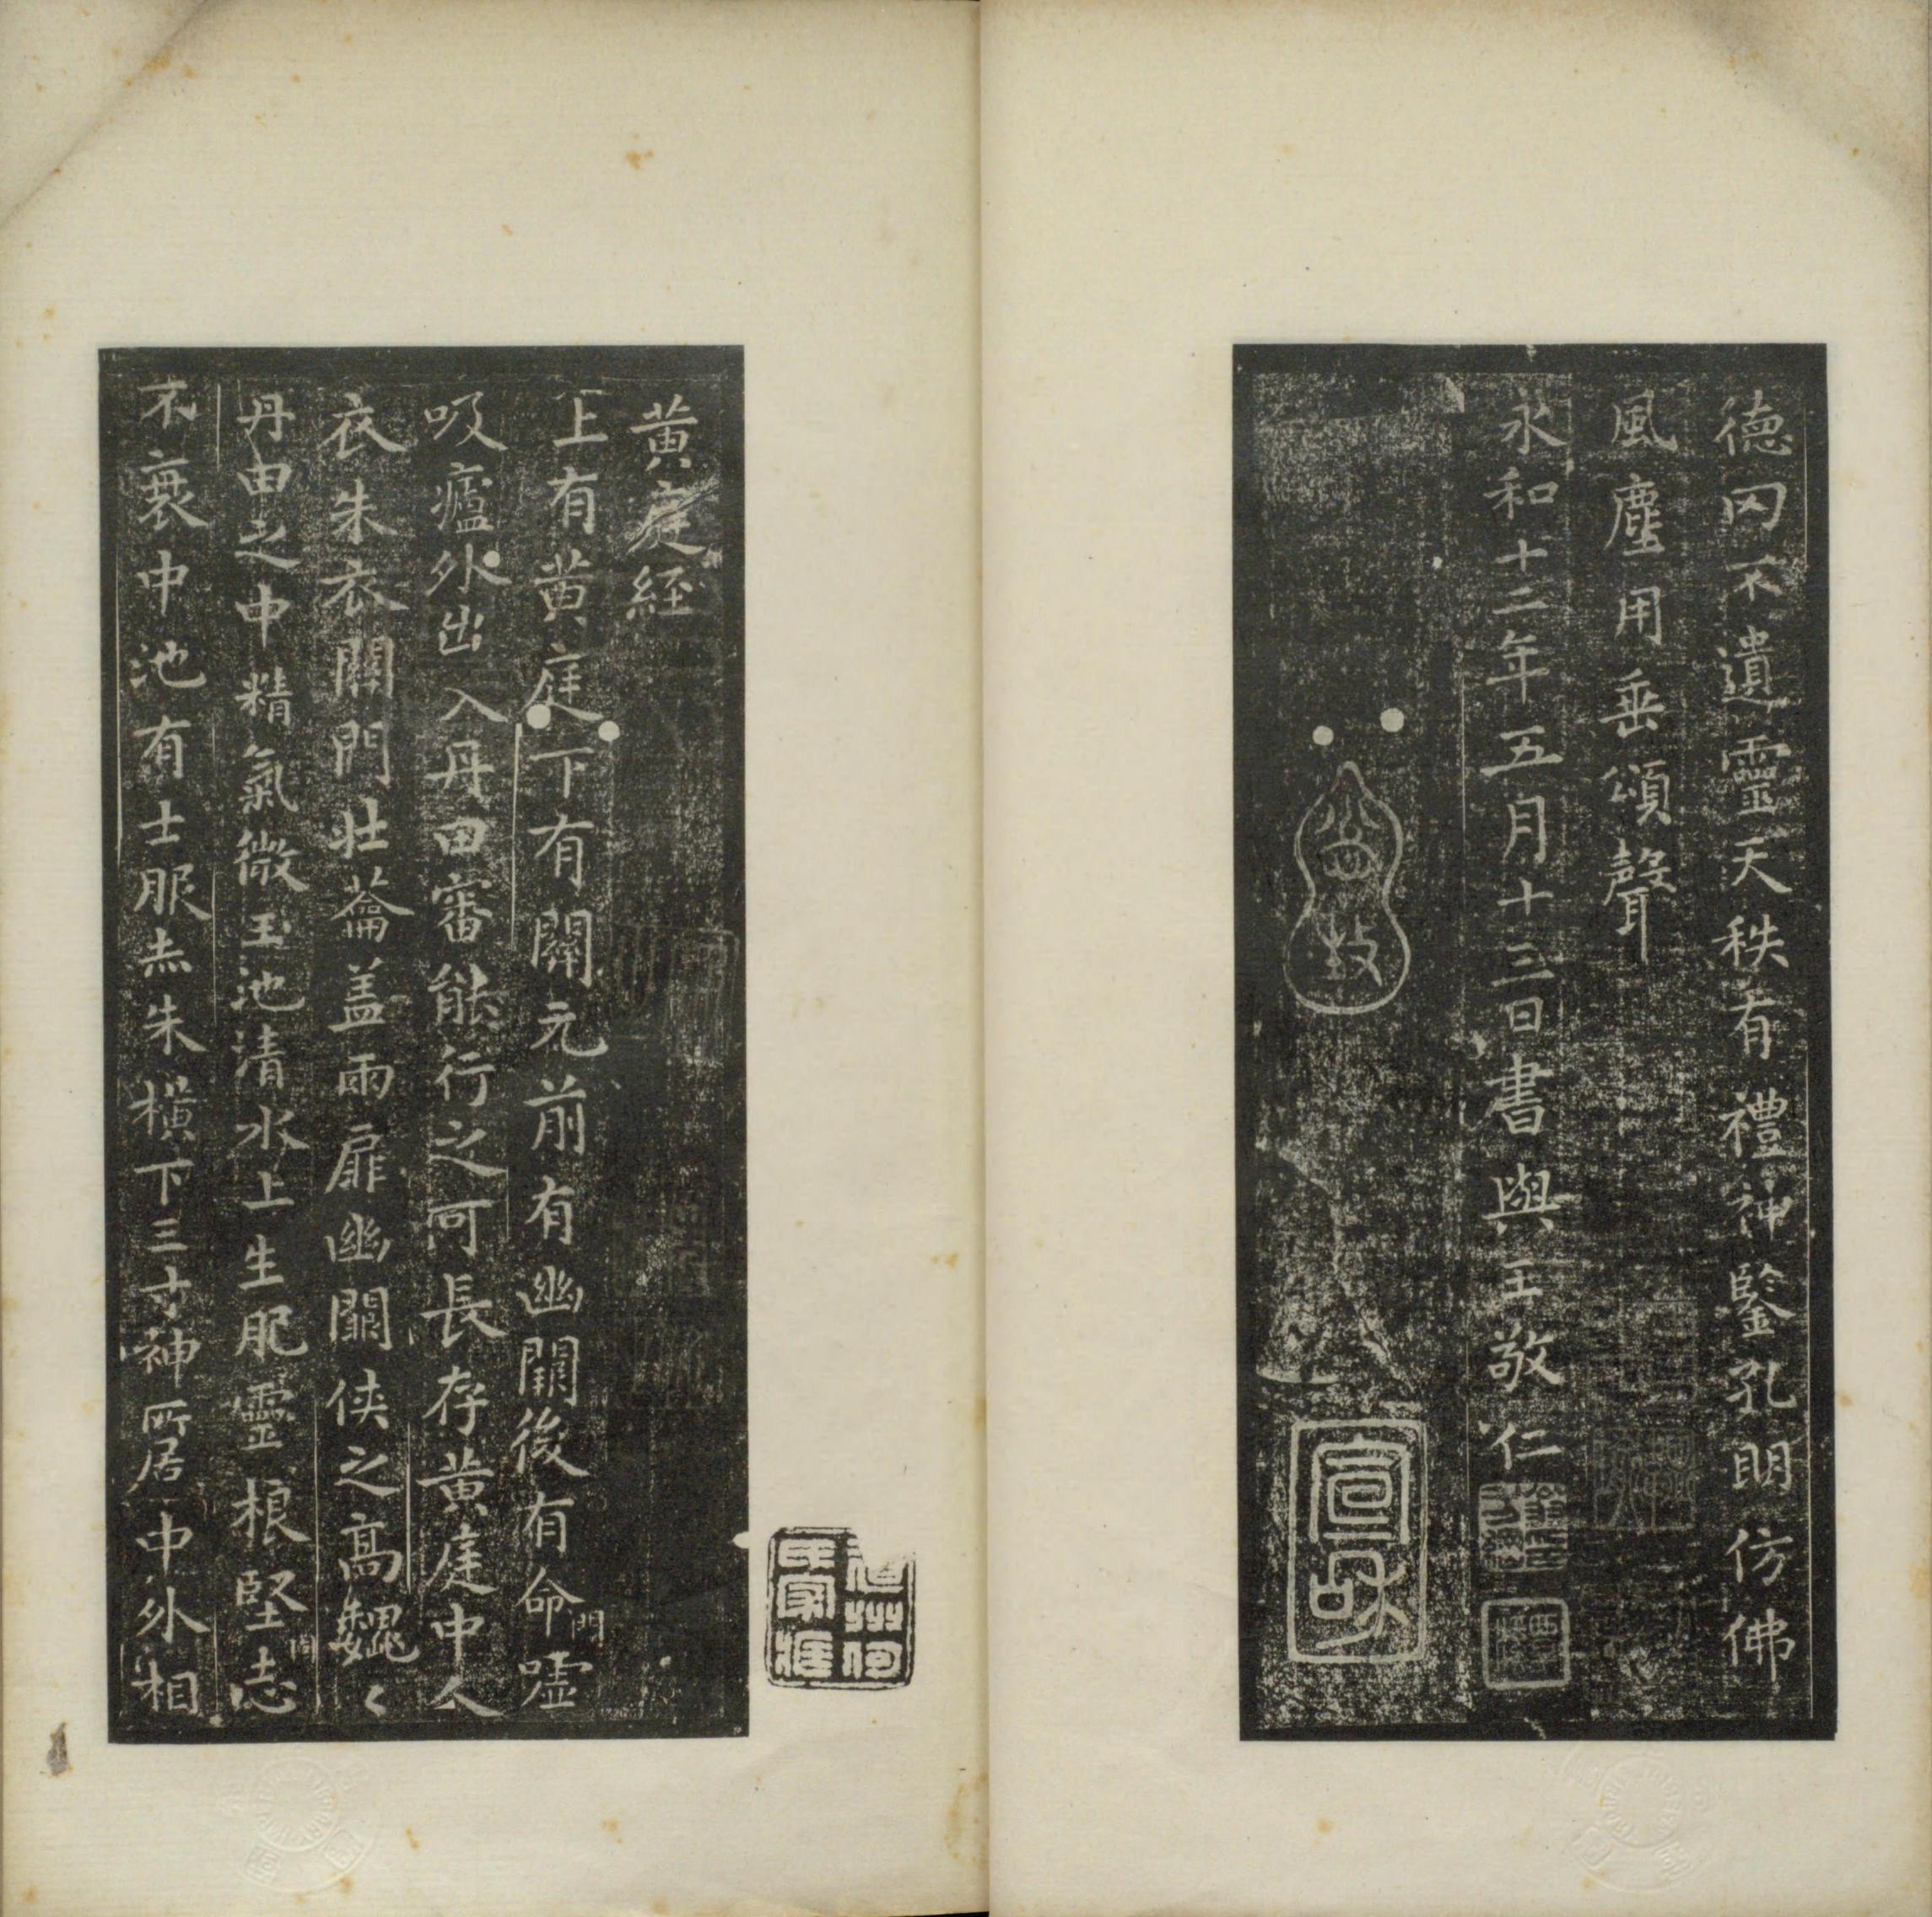 德冈不遺靈天秩有禮神鑒孔明仿佛
風塵用垂頌聲
永和十二年五月十三日書與王敬仁
宣和
黄庭經
上有黄庭下有關元前有幽闕後有命門噓
吸廬外出入丹田審能行之可長存黄庭中人
衣朱衣關門壯蘥盖兩扉幽闕俠之高巍〻
丹田之中精氣微玉池清水上生肥靈根堅志
不衰中池有士服赤朱橫下三寸神所居中外相